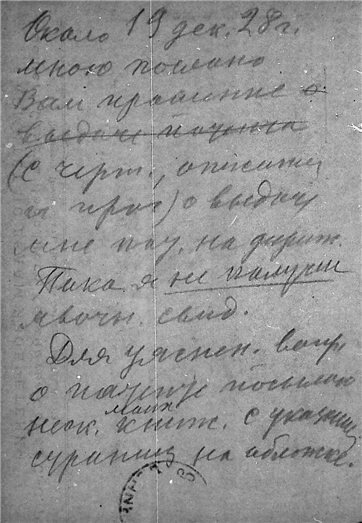 Около 19 дек. 28 г.
мною послано
Вам прошение о
выдаче патента
(с черт., описание
и проч) о выдаче
мне пат. на дириж.
Пока я не получил
явочн. свид.
Для уяснен. вопр
о патенте посылаю
неск. моих книж. с указание
страниц на обложке.